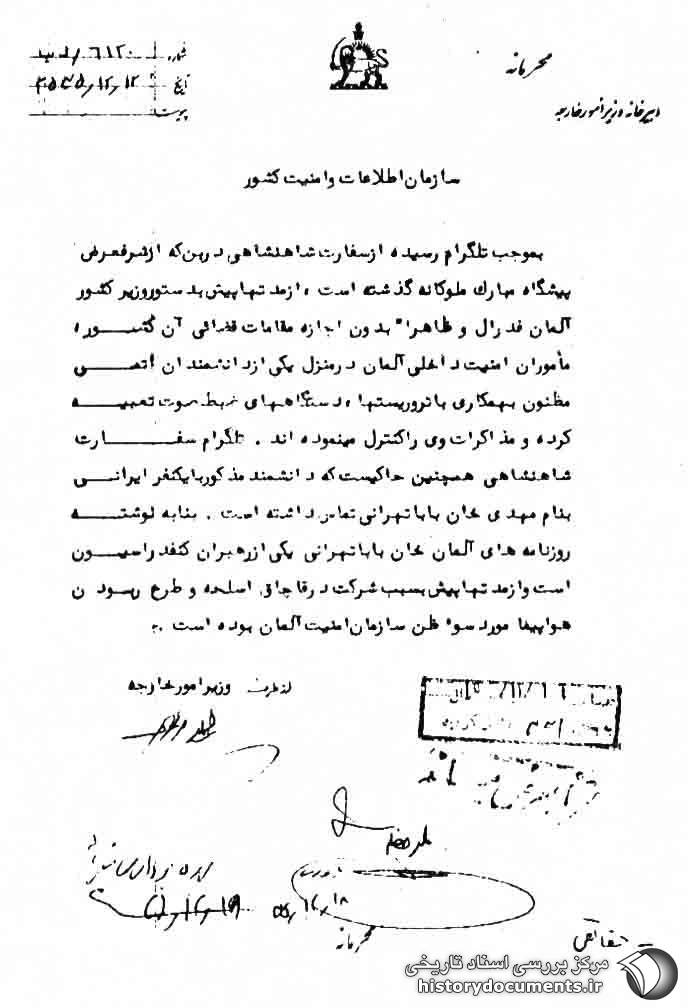 محرمانه
دبیرخانه وزیر امور خارجه
شماره ۶۱۲۰
تاریخ ۲۵۳۵/۱۲/۱۲
پیوست
سازمان اطلاعات و امنیت کشور
بموجب تلگرام رسیده از سفارت شاهنشاهی در بن که از شرفعرض
پیشگاه مبارک ملوکانه گذشته است ، از مدتها پیش بدستور وزیر کشور
آلمان فدرال و ظاهراً بدون اجازه مقامات قضائی آن کشور ،
مأموران امنیت داخلی آلمان در منزل یکی از دانشمندان اتمی
مظنون بهمکاری با تروریستها ، دستگاههای ضبط صوت تعبیه
کرده و مذاکرات وی را کنترل مینموده اند . تلگرام سفارت
شاهنشاهی همچنین حاکیست که دانشمند مذکور با یکنفر ایرانی
بنام مهدی خان بابا تهرانی تماس داشته است . بنا به نوشته
روزنامه های آلمان خان بابا تهرانی یکی از رهبران کنفدراسیون
است و از مدتها پیش بسبب شرکت در قاچاق اسلحه و طرح ربودن
هواپیما مورد سوء ظن سازمان امنیت آلمان بوده است .
از طرف وزیر امور خارجه
۱۸/۱۲/۳۵
محرمانه
حفاظتی
مرکز بررسی اسناد تاریخی
historydocuments.ir